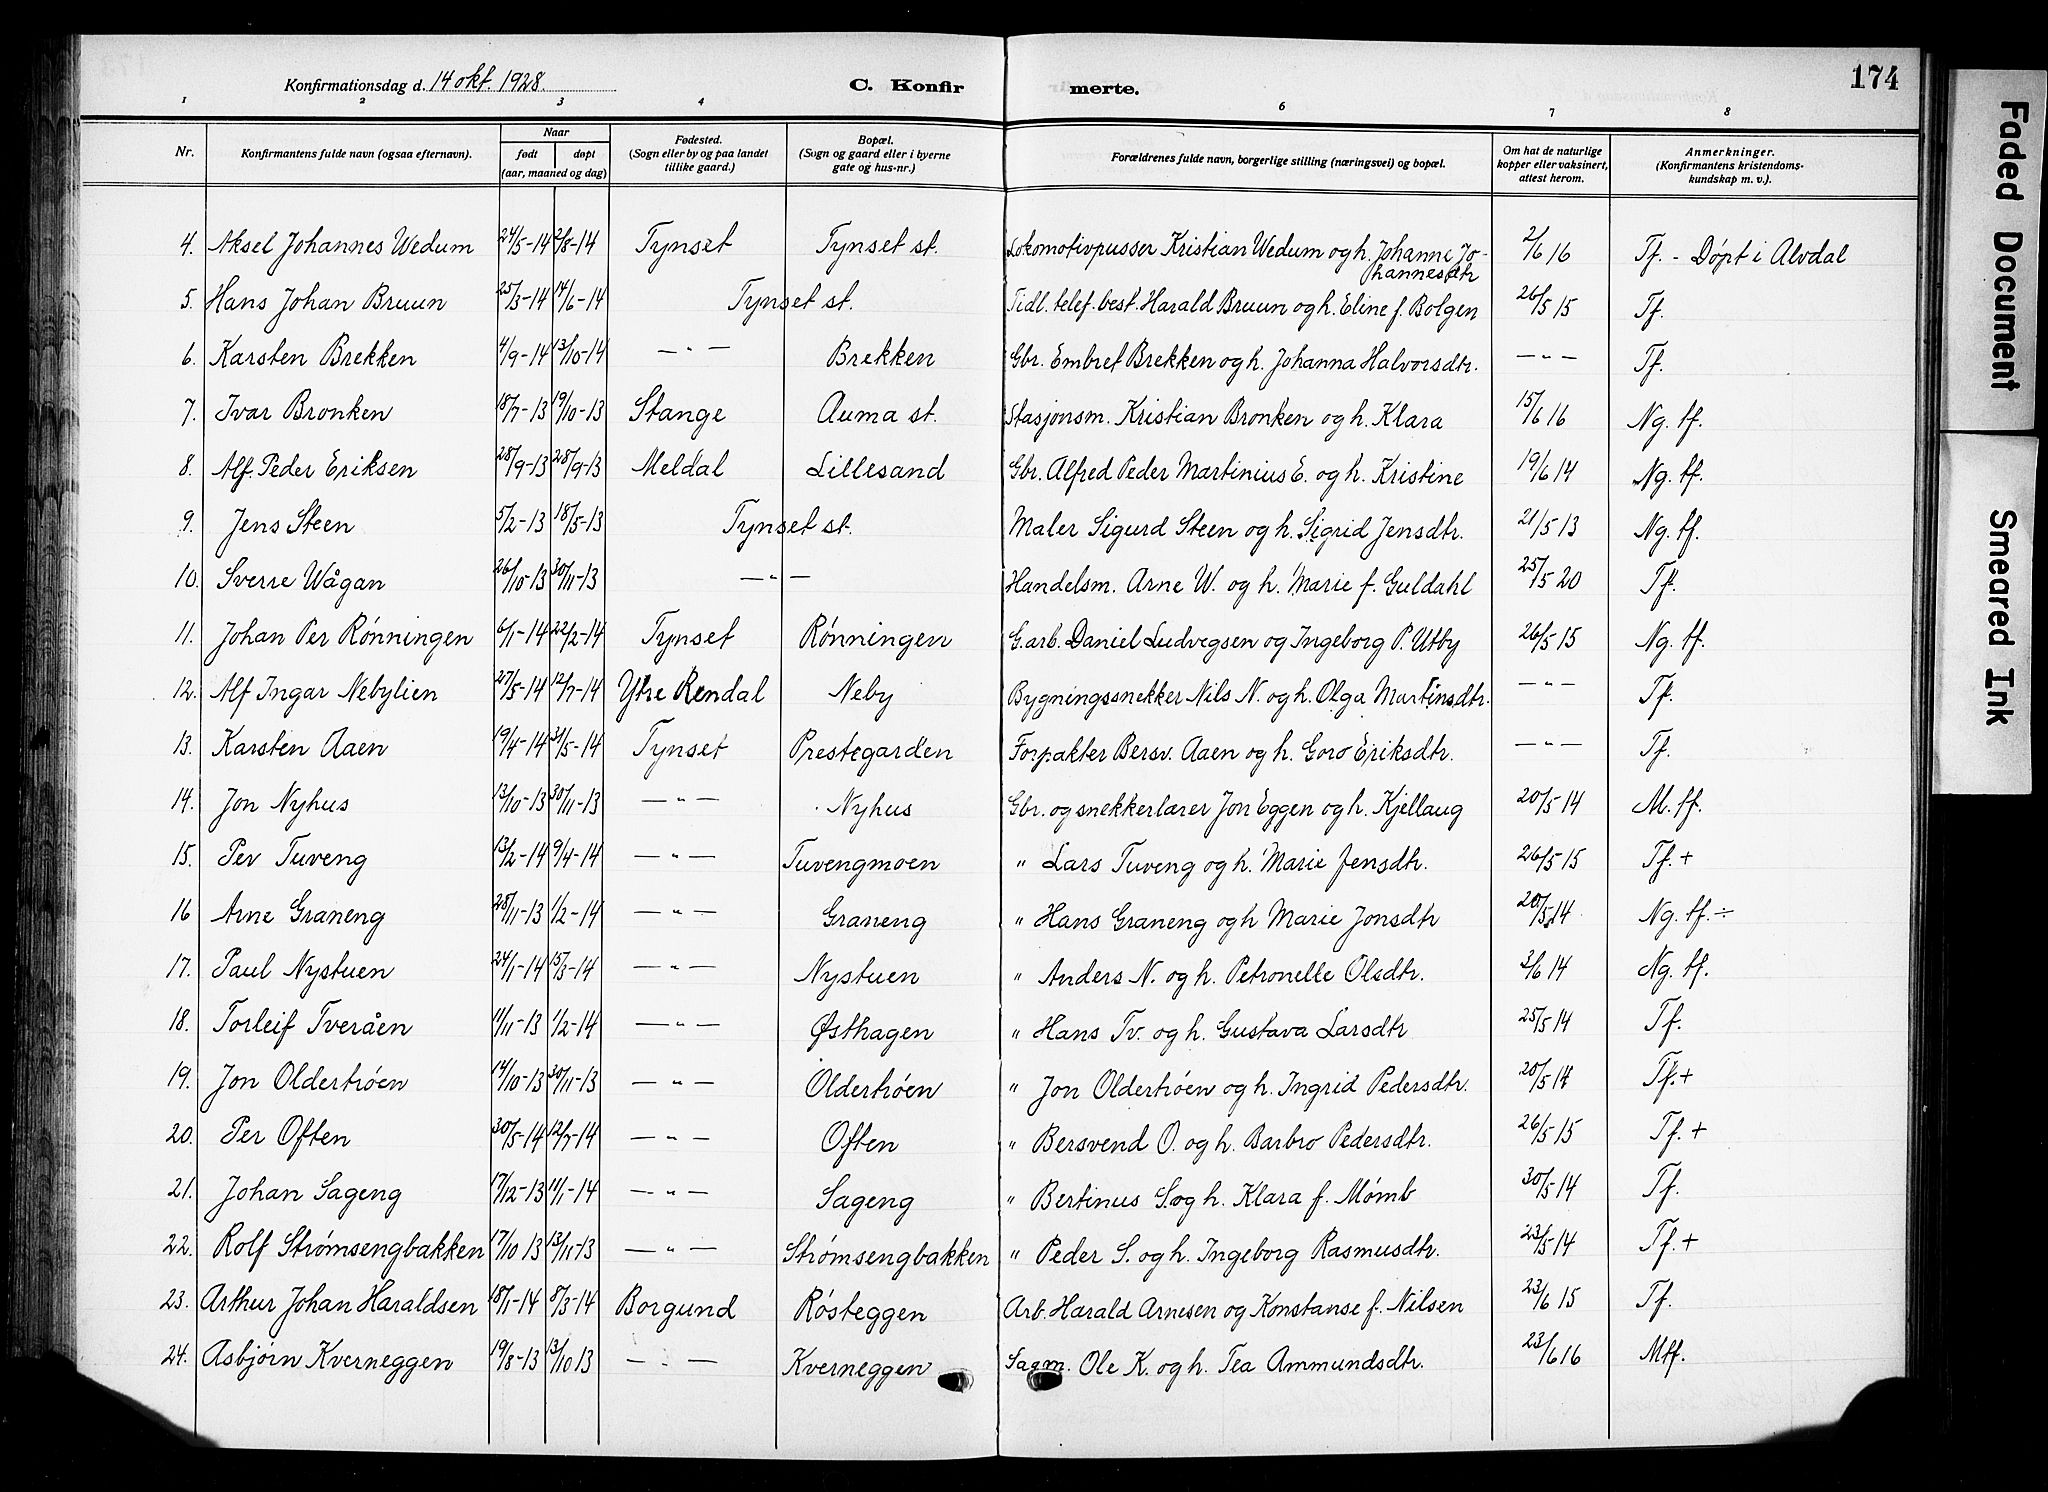 Konfirmationsdag d. 14 okt. 1928. C. Konfirmerte. 174
1 2 3 4 5 6 7 8
Nr. Konfirmantens fulde navn (ogsaa efternavn). Naar født døpt (aar, maaned og dag) Fødested. (Sogn eller by og paa landet tillike gaard.) Bopæl. (Sogn og gaard eller i byerne gate og hus-nr.) Forældrenes fulde navn, borgerlige stilling (næringsvei) og bopæl. Om hat de naturlige kopper eller vaksinert, attest herom. Anmerkninger. (Konfirmantens kristendomskundskap m. v.).
4. Aksel Johannes Wedum 24/5-14 2/8-14 Tynset Tynset st. Lokomotivpusser Kristian Wedum og h. Johanne Johannesdtr 2/6 16 Tf. - Døpt i Alvdal
5. Hans Johan Bruun 25/3-14 14/6-14 Tynset st. Tidl. telef. best. Harald Bruun og h. Eline f. Bolgen 26/5 15 Tf.
6. Karsten Brekken 4/9-14 13/10-14 — " — Brekken Gbr. Embret Brekken og h. Johanna Halvorsdtr. — " — Tf.
7. Ivar Bronken 18/7-13 19/10-13 Stange Auma st. Stasjonsm. Kristian Bronken og h. Klara 15/6 16 Ng. tf.
8. Alf Peder Eriksen 28/9-13 28/9-13 Meldal Lillesand Gbr. Alfred Peder Martinius E. og h. Kristine 19/6 14 Ng. tf.
9. Jens Steen 5/2-13 18/5-13 Tynset st. Maler Sigurd Steen og h. Sigrid Jensdtr. 21/5 13 Ng. tf.
10. Sverre Wågan 26/10-13 30/11-13 — " — Handelsm. Arne W. og h. Marie f. Guldahl 25/5 20 Tf.
11. Johan Per Rønningen 6/1-14 22/2-14 Tynset Rønningen G.arb. Daniel Ludvegsen og Ingeborg P. Utby 26/5 15 Ng. tf.
12. Alf Ingar Nebylien 27/5-14 12/7-14 Ytre Rendal Neby Bygningssnekker Nils N. og h. Olga Martinsdtr. — " — Tf.
13. Karsten Aaen 19/4-14 31/5-14 Tynset Prestegarden Forpakter Bersv. Aaen og h. Goro Eriksdtr. — " — Tf.
14. Jon Nyhus 13/10-13 30/11-13 — " — Nyhus Gbr. og snekkerlærer Jon Eggen og h. Kjellaug 20/5 14 M. tf.
15. Per Tuveng 13/2-14 9/4-14 — " — Tuvengmoen " Lars Tuveng og h. Marie Jensdtr. 26/5 15 Tf. +
16 Arne Graneng 28/11-13 1/2-14 — " — Graneng " Hans Graneng og h Marie Jonsdtr 20/5 14 Ng. tf. ÷
17. Paul Nystuen 24/1-14 15/3-14 — " — Nystuen " Anders N. og h. Petronelle Olsdtr. 3/6 14 Ng. tf.
18. Torleif Tveråen 11/11-13 1/2-14 — " — Østhagen " Hans Tv. og h. Gustava Larsdtr 25/5 14 Tf.
19. Jon Oldertrøen 14/10-13 30/11-13 — " — Oldertrøen " Jon Oldertrøen og h. Ingrid Pedersdtr. 20/5 14 Tf. +
20. Per Often 30/5-14 12/7-14 — " — Often " Bersvend O. og h. Barbro Pedersdtr. 26/5 15 Tf. +
21. Johan Sageng 17/12-13 11/1-14 — " — Sageng " Bertinus S. og h. Klara f. Mømb 30/5 14 Tf.
22. Rolf Strømsengbakken 17/10 13 13/11-13 — " — Strømsengbakken " Peder S. og h. Ingeborg Rasmusdtr. 23/5 14 Tf. +
23. Arthur Johan Haraldsen 18/1-14 8/3-14 Borgund Røsteggen Arb. Harald Arnesen og Konstanse f. Nilsen 23/6 15 Tf.
24. Asbjørn Kverneggen 19/8-13 13/10 13 — " — Kverneggen Sagm. Ole K. og h. Tea Ammundsdtr. 23/6 16 Mtf.
Faded Document
Smeared Ink